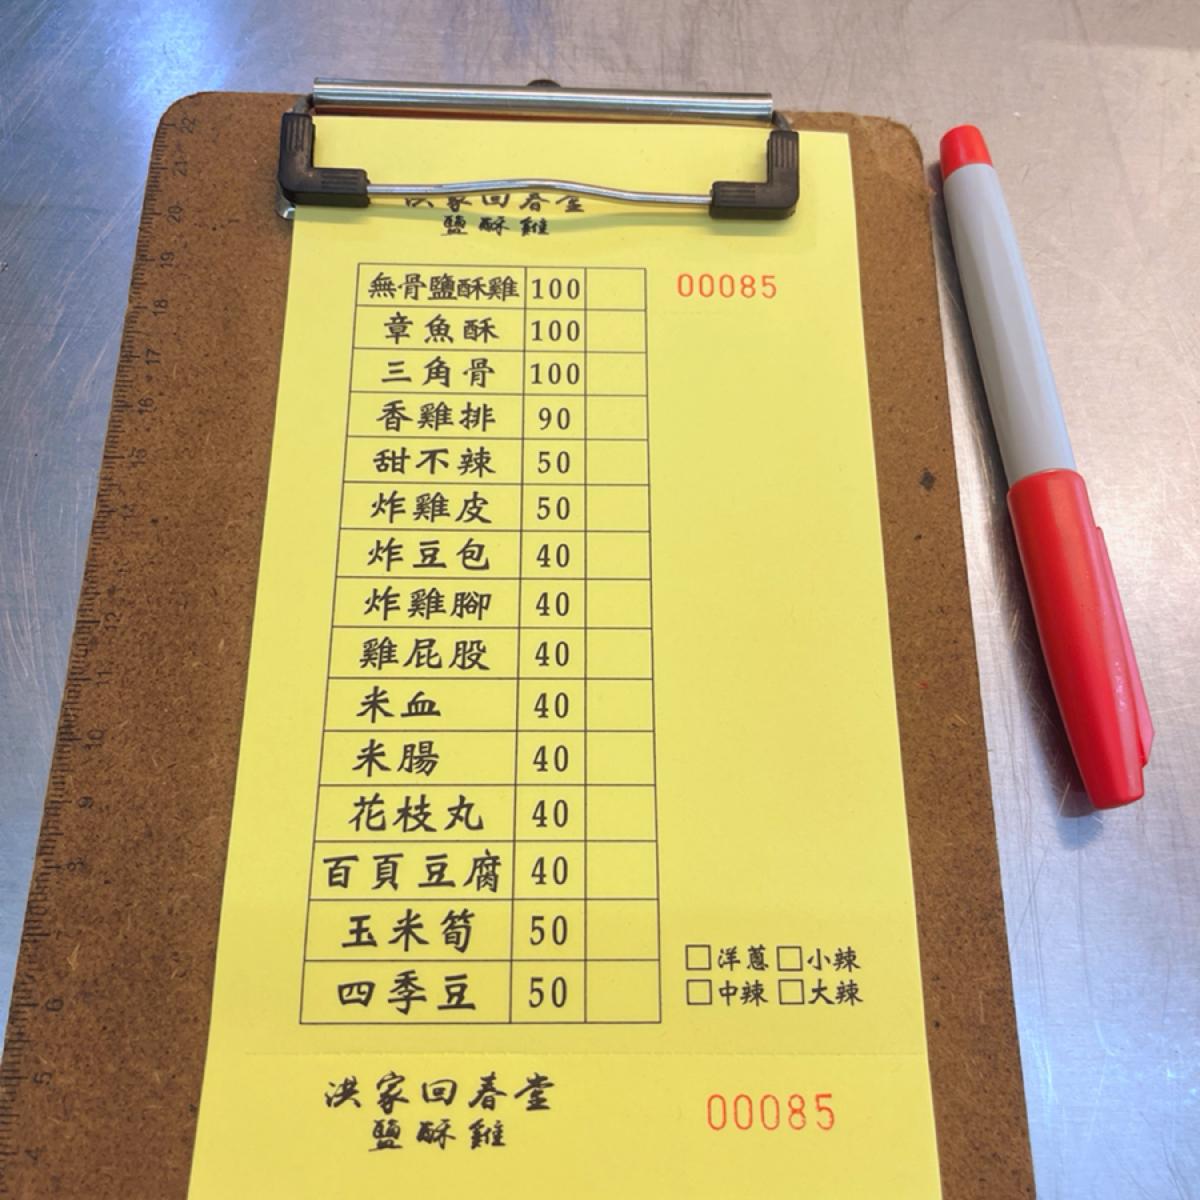 洪家回春堂
鹽酥雞
無骨鹽酥雞 100
00085
章魚酥 100
三角骨 100
香雞排 90
甜不辣 50
炸雞皮 50
炸豆包 40
炸雞腳 40
雞屁股 40
米血 40
米腸 40
花枝丸 40
百頁豆腐 40
玉米筍 50
四季豆 50
□洋蔥□小辣
□中辣□大辣
洪家回春堂
鹽酥雞
00085
22
21
20
19
18
17
16
15
14
13
12
11
10
9
8
7
6
5
4